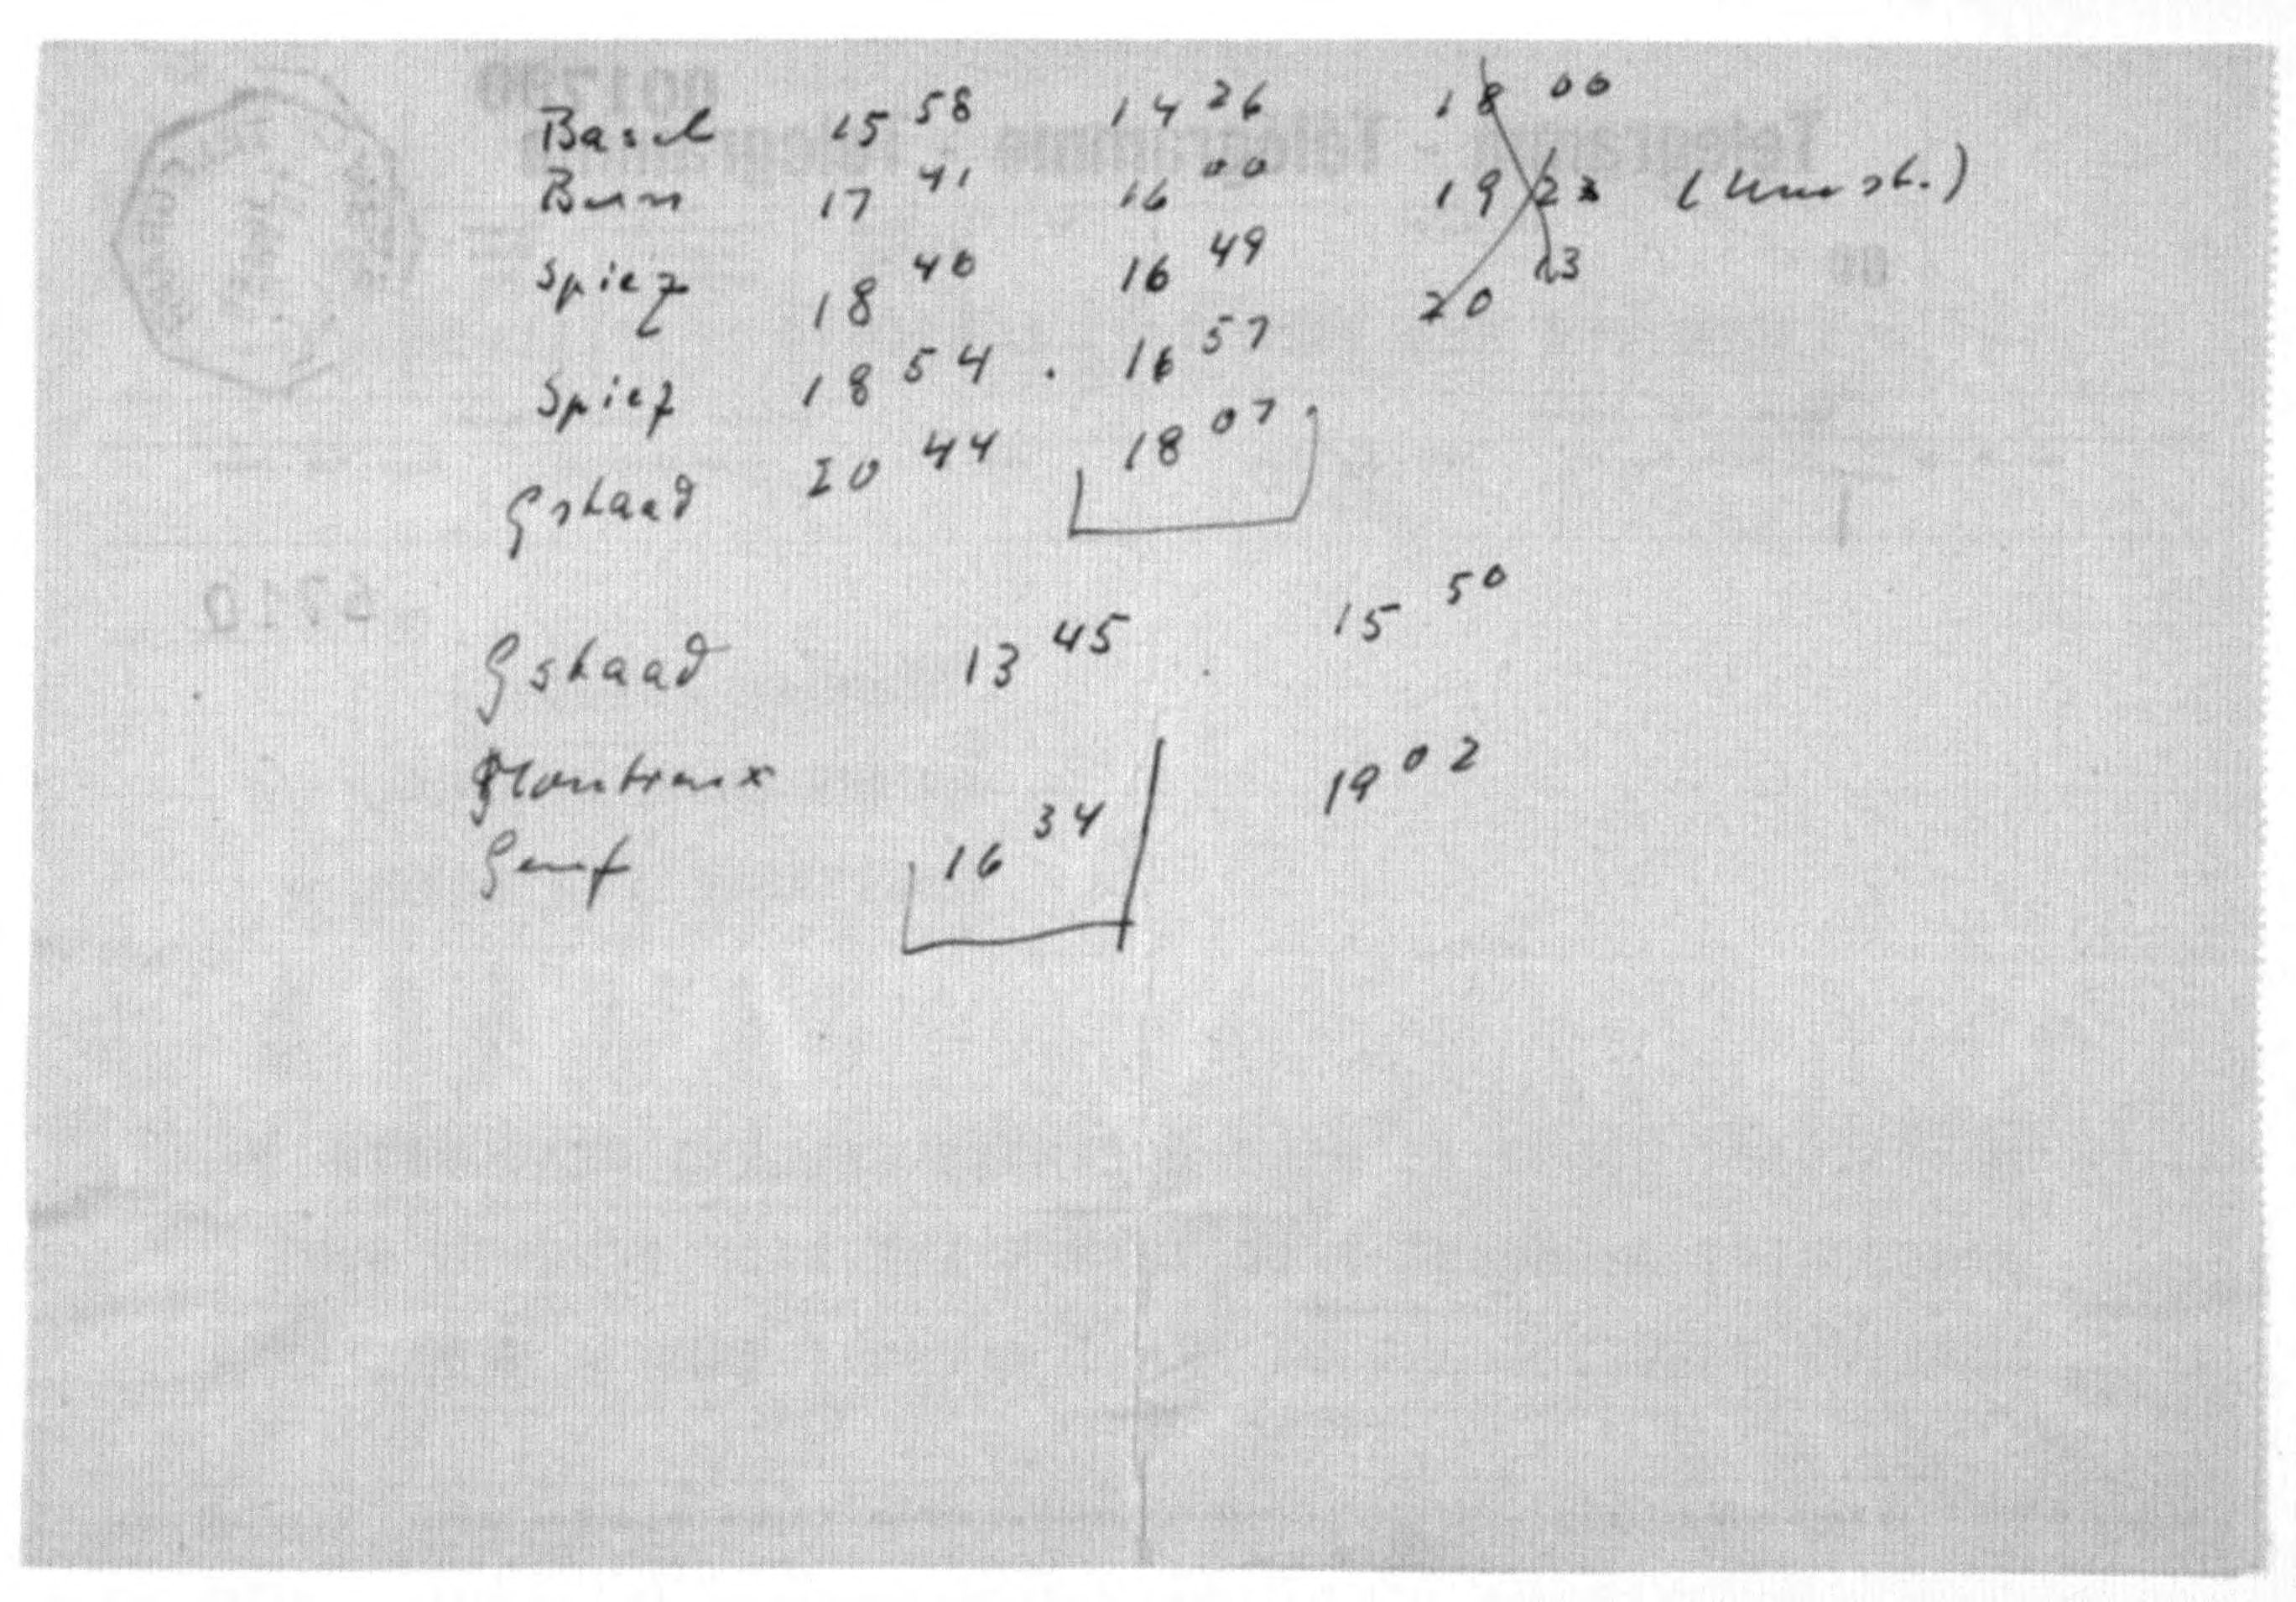 Basel 15 58 14 26 18 00
Bern 17 41 16 00 19 22 (Umst.)
Spiez 18 40 16 49 20 13
Spiez 18 54 . 16 57
Gstaad 20 44 18 07
Gstaad 13 45 15 50
Montreux 19 02
Genf 16 34